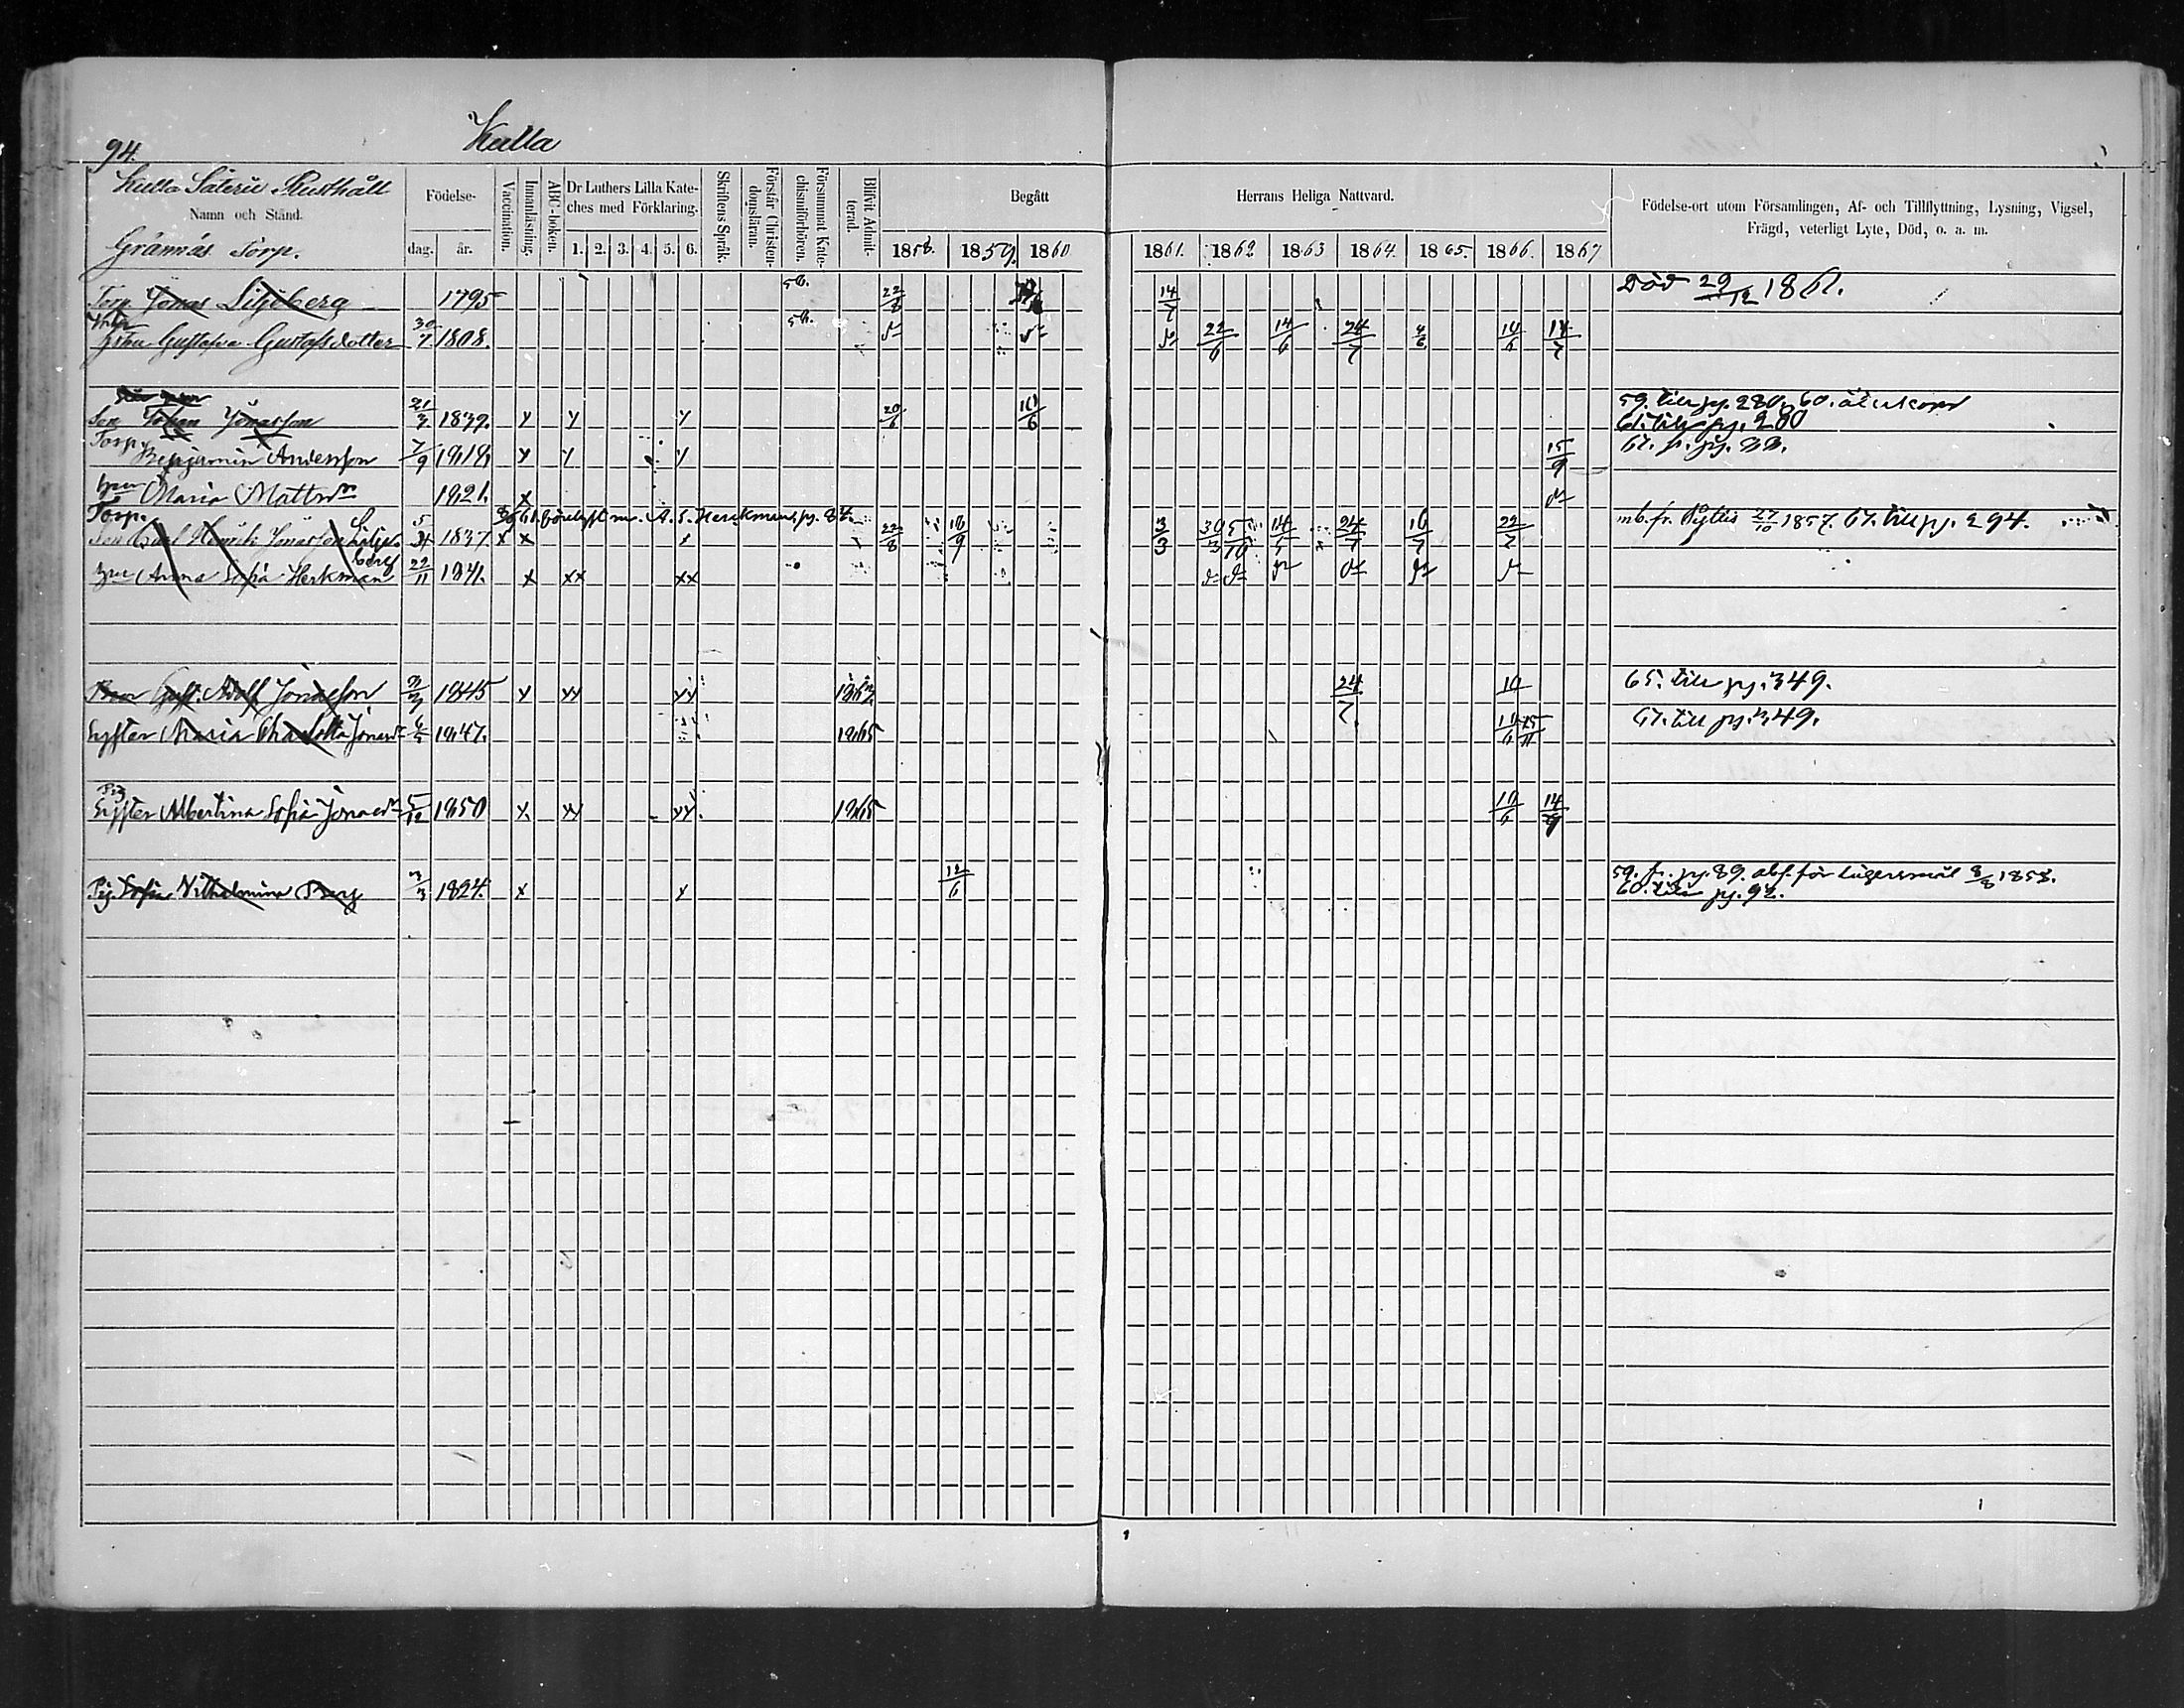 94.
Kulla
Kulla Säteri Rusthåll
Namn och Stånd.
Grännäs Torp.
Födelse-
dag. år.
Vaccination.
Innanläsning.
ABC-boken.
Dr Luthers Lilla Kate-
ches med Förklaring.
1. 2. 3. 4. 5. 6.
Skriftens Språk.
Förstår Christen-
domsläran.
Försummat Kate-
chismiförhören.
Blifvit Admit-
terad.
Begått
1858. 1859. 1860
Herrans Heliga Nattvard.
1861. 1862 1863 1864. 1865. 1866. 1867
Födelse-ort utom Församlingen, Af- och Tillflyttning, Lysning, Vigsel,
Frägd, veterligt Lyte, Död, o. a. m.
Torp. Jonas Liljeberg 1795 22/8 14/7 Död 29/12 1861.
Gustafva Gustafsdotter 30/7 1808. 22/6 14/6 24/7 4/6 14/7
Son Johan Jonasson 21/3 1839. x x x 20/6 10/6 59. till pg. 280. 60. återkom
61. till pg. 280
Torp. Benjamin Andersson 7/9 1818. x x x 15/9 67. fr. pg.
hu Maria Mattsdr 1821. x
Torp.
förlyst m. A. S. Herkman, pg. 84.
Son Carl Henrik Jonasson Liljeberg 1837 x x x 22/8 3/3 14/5 24/7 16/7 22/7 mb. fr. Pyttis 27/10 1857. 67. till pg. 294.
hu Anna Sofia Herkman 22/11 1841. x xx xx
Bror Gust. Adolf Jonasson 1845 x xx xx 24/7 10 65. till pg. 349.
Syster Maria Charlotta Jonasdr 1847. 1865 10/6 67. till pg. 349.
Pig
Syster Albertina Sofia Jonasdr 5/12 1850 x xx xx 1865 10/6 14/9
Pig. Sofia Vilhelmina Berg 3/3 1824. x x 12/6 59. fr. pg. 89. abs. för lägersmål 8/8 1858.
60. till pg. 92.